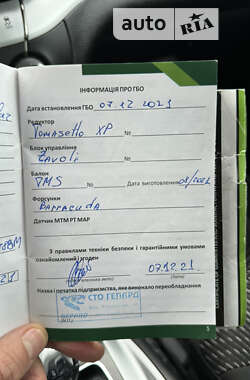 auto RIA
ІНФОРМАЦІЯ ПРО ГБО
Дата встановлення ГБО 07.12 2021
Редуктор
Tomasetto XP №
Блок управління
Zavoli №
Балон
PMS № Дата виготовлення 08/2021
Форсунки
Barracuda №
Датчик MTM PT MAP
З правилами техніки безпеки і гарантійними умовами
ознайомлений і згоден
07.12.21
(дата)
Назва і печатка підприємства, яке виконало переобладнання
СТО ГЕПАРД
5